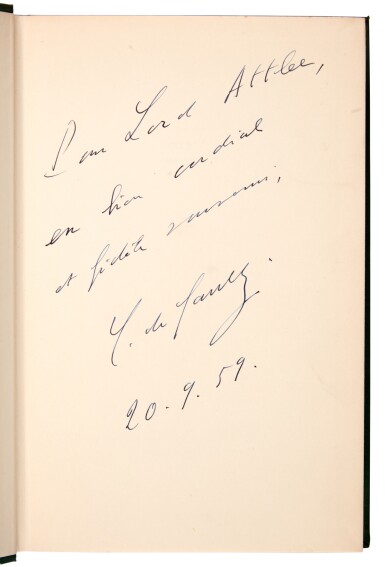 Pour Lord Attlee,
en bien cordial
et fidèle souvenir,
C. de Gaulle.
20.9.59.